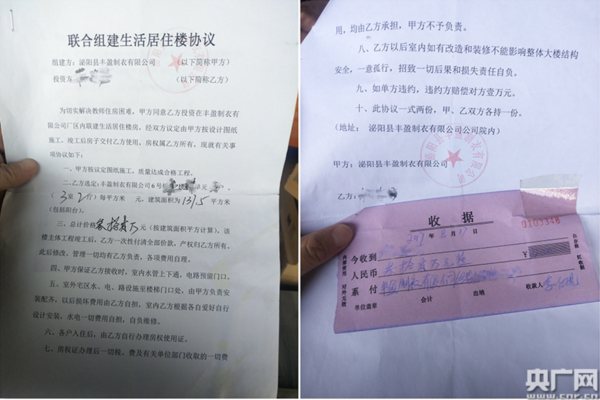 联合组建生活居住楼协议
组建方：泌阳县丰盈制衣有限公司 （以下简称甲方）
投资方： （以下简称乙方）
为切实解决教师住房困难，甲方同意乙方投资在丰盈制衣有
限公司厂区内联建生活居住楼房，经双方议定由甲方按设计图纸
施工，竣工后房子交付乙方使用，房权属乙方所有，现就有关事
项协议如下：
一、甲方按设定图纸施工，质量达成合格工程。
二、乙方选定：丰盈制衣有限公司6号楼
（3室2厅）每平方米 元，建筑面积为131.5平方米
（包括阳台）。
三、总计价格 元（按建筑面积平方计算），该
楼主体工程竣工后，乙方一次性付清全部价款，产权归乙方所有。
此后修改、管理一切均有乙方负责，各项费用自理。
四、甲方保证乙方接收时，室内水管上下通，电路预留门口。
五、室外宅区水、电、路设施至楼梯门口处，由甲方负责安
装配齐，以后损坏费用由乙方自担，室内乙方根据各自爱好自行
设计安装，水电一切费用自担，自负维修。
六、各户入住后，由乙方自行办理房权使用证。
七、房权证办理后一切税、费及有关单位部门收取的一切费
用，均由乙方承担，甲方不予负责。
八、乙方以后室内如有改造和装修不能影响整体大楼结构
安全，一意孤行，招致一切后果和损失责任自负。
九、如单方违约，违约方赔偿对方壹万元。
十、此协议一式两份，甲、乙双方各持一份。
（地址： 泌阳县丰盈制衣有限公司公司院内）
甲方：泌阳县丰盈制衣有限公司
乙方：
收 据
0103348
年 月 日
今收到
人民币
系 付
单位盖章 会计 出纳 收款人
央广网
www.cnr.cn